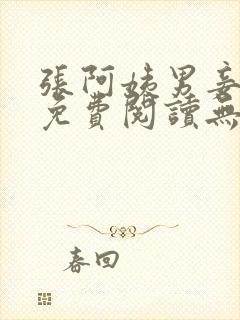 張阿姨男妾
免費閱讀無
春回